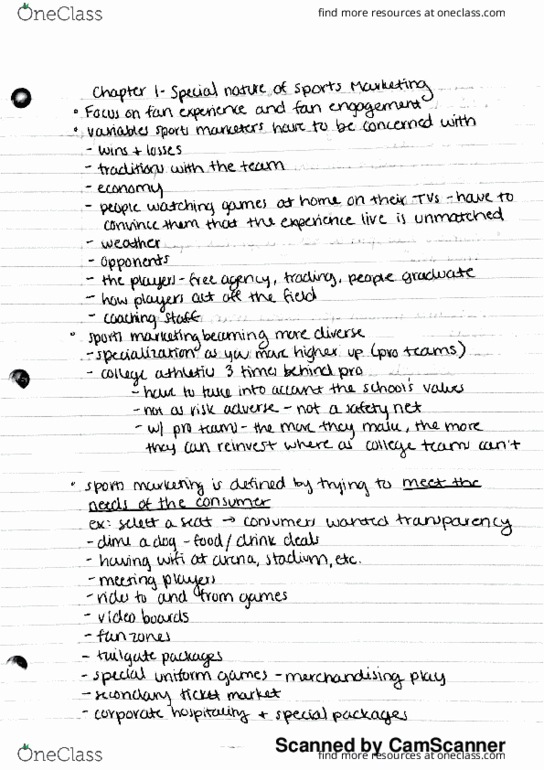 OneClass
find more resources at oneclass.com
Chapter 1 - Special nature of sports Marketing
• Focus on fan experience and fan engagement
• variables sports marketers have to be concerned with
- wins + losses
- traditions with the team
- economy
- people watching games at home on their TVs - have to
convince them that the experience live is unmatched
- weather
- opponents
- the players - free agency, trading, people graduate
- how players act off the field
- coaching staff
• sports marketing becoming more diverse
- specialization as you move higher up (pro teams)
- college athletics 3 times behind pro
- have to take into account the school's values
- not as risk adverse - not a safety net
- w/ pro teams - the more they make, the more
they can reinvest where as college teams can't
• sports marketing is defined by trying to meet the
needs of the consumer
ex: select a seat → consumers wanted transparency
- dime a dog - food/drink deals
- having wifi at arena, stadium, etc.
- meeting players
- rides to and from games
- video boards
- fan zones
- tailgate packages
- special uniform games - merchandising play
- secondary ticket market
- corporate hospitality + special packages
Scanned by CamScanner
OneClass
find more resources at oneclass.com